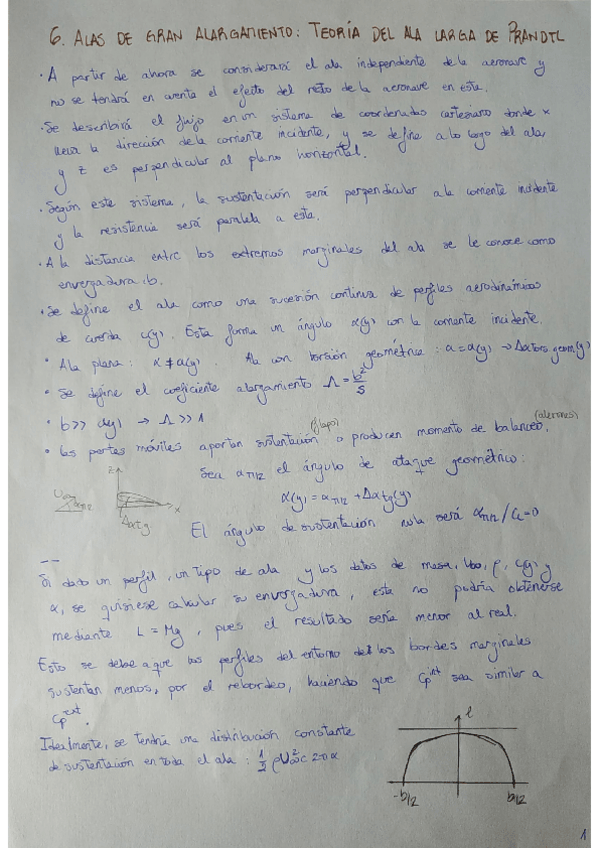 6. ALAS DE GRAN ALARGAMIENTO: TEORÍA DEL ALA LARGA DE PRANDTL
· A partir de ahora se considerará el ala independiente de la aeronave y
no se tendrá en cuenta el efecto del resto de la aeronave en esta.
· Se describirá el flujo en un sistema de coordenadas cartesiano donde x
lleva la dirección de la corriente incidente, y se define a lo largo del ala,
y z es perpendicular al plano horizontal.
· Según este sistema, la sustentación será perpendicular a la corriente incidente
y la resistencia será paralela a esta.
· A la distancia entre los extremos marginales del ala se le conoce como
envergadura: b.
· Se define el ala como una sucesión continua de perfiles aerodinámicos
de cuerda c(y). Esta forma un ángulo α(y) con la corriente incidente.
· Ala plana: α ≠ α(y). Ala con torsión geométrica: α = α(y) → Δαtors geom(y)
· Se define el coeficiente alargamiento Λ = b²/S
· b >> c(y) → Λ >> 1
(flaps) (alerones)
· Las partes móviles aportan sustentación o producen momento de balanceo.
Sea απ12 el ángulo de ataque geométrico:
z
α(y) = απ12 + Δαtg(y)
U∞ απ12
x
Δαtg
El ángulo de sustentación nula será απ12 / CL=0
Si dado un perfil, un tipo de ala y los datos de masa, U∞, ρ, c(y) y
α, se quisiese calcular su envergadura, esta no podría obtenerse
mediante L = Mg, pues el resultado sería menor al real.
Esto se debe a que los perfiles del entorno de los bordes marginales
sustentan menos, por el rebordeo, haciendo que Cp int sea similar a
Cp ext.
Idealmente, se tendría una distribución constante
de sustentación en toda el ala: 1/2 ρU²∞ c 2πα
l
-b/2
b/2
1